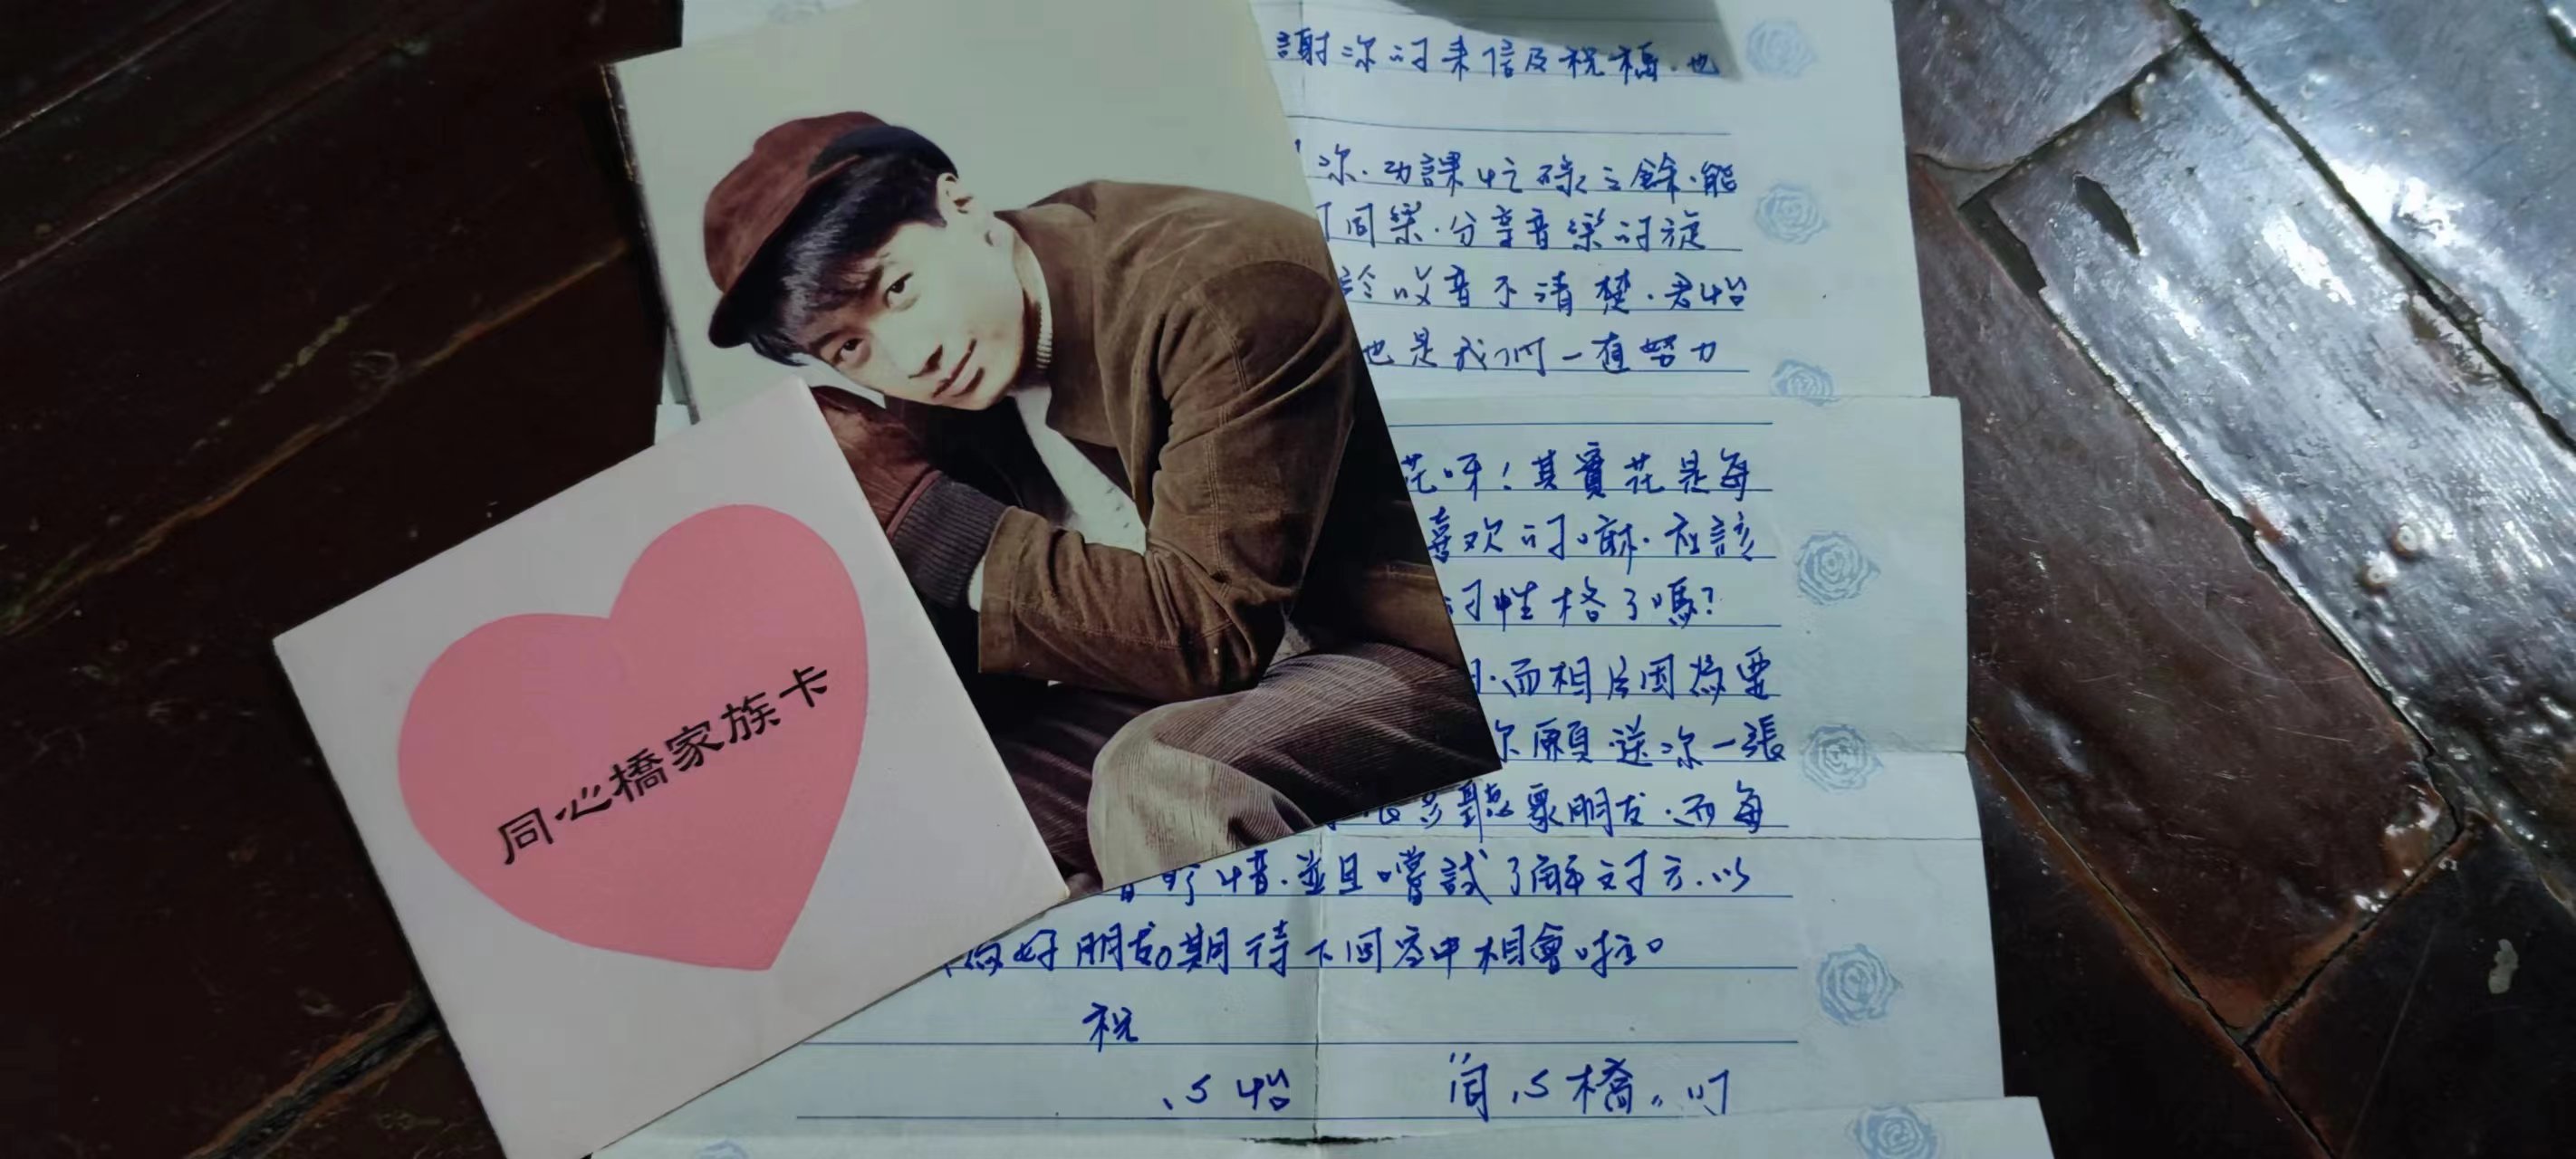 謝你的来信及祝福.也
你.功課忙碌之餘.能
同樂.分享音樂的旋
於收音不清楚.君怡
也是我们一直努力
花呀!其實花是每
喜欢的嘛.应該
的性格了嗎?
而相片因為要
你願送你一張
聽衆朋友.而每
並且嚐試了解对方.以
為好朋友。期待下回空中相會啦。
祝
心怡 "同心橋"
同心橋家族卡